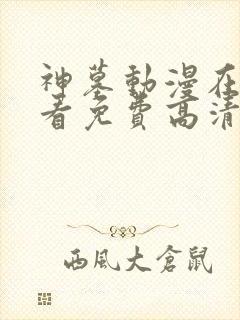 神墓動漫在
看免費高清
西風大倉鼠